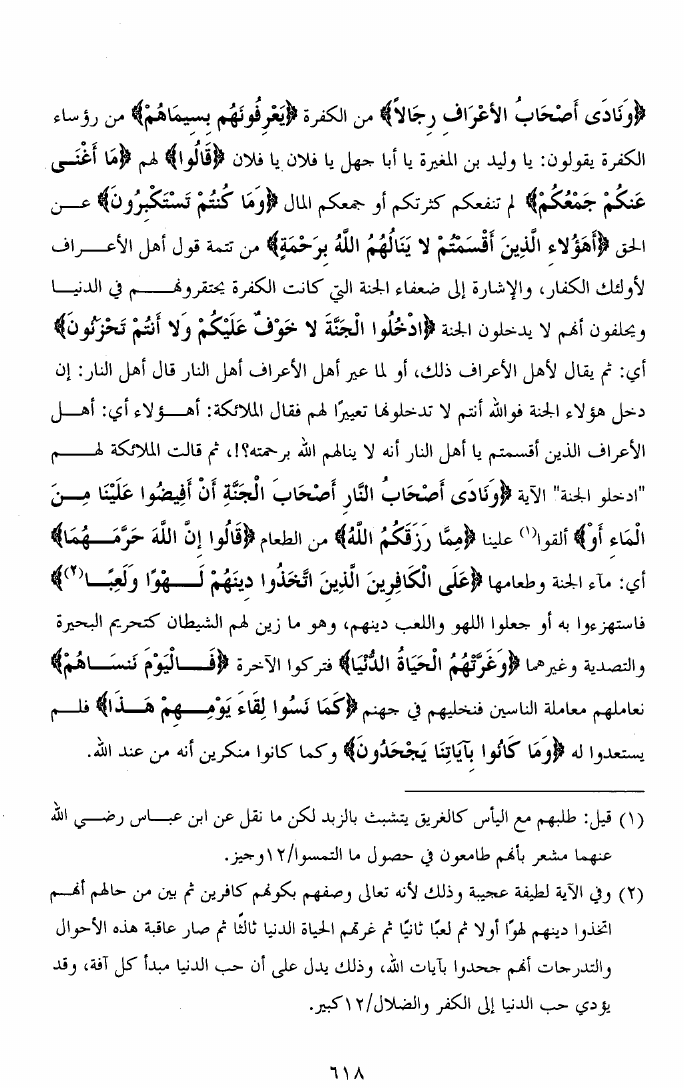 ﴿وَنَادَى أَصْحَابُ الأَعْرَافِ رِجَالاً﴾ من الكفرة ﴿يَعْرِفُونَهُم بِسِيمَاهُمْ﴾ من رؤساء
الكفرة يقولون: يا وليد بن المغيرة يا أبا جهل يا فلان يا فلان ﴿قَالُوا﴾ لهم ﴿مَا أَغْنَى
عَنكُمْ جَمْعُكُمْ﴾ لم تنفعكم كثرتكم أو جمعكم المال ﴿وَمَا كُنتُمْ تَسْتَكْبِرُونَ﴾ عن
الحق ﴿أَهَؤُلاءِ الَّذِينَ أَقْسَمْتُمْ لا يَنَالُهُمُ اللَّهُ بِرَحْمَةٍ﴾ من تتمة قول أهل الأعراف
لأولئك الكفار، والإشارة إلى ضعفاء الجنة التي كانت الكفرة يحتقرونهم في الدنيا
ويحلفون أنهم لا يدخلون الجنة ﴿ادْخُلُوا الْجَنَّةَ لا خَوْفٌ عَلَيْكُمْ وَلا أَنتُمْ تَحْزَنُونَ﴾
أي: ثم يقال لأهل الأعراف ذلك، أو لما عير أهل الأعراف أهل النار قال أهل النار: إن
دخل هؤلاء الجنة فوالله أنتم لا تدخلونها تعييرًا لهم فقال الملائكة: أهؤلاء أي: أهل
الأعراف الذين أقسمتم يا أهل النار أنه لا ينالهم الله برحمته؟!، ثم قالت الملائكة لهم
"ادخلو الجنة" الآية ﴿وَنَادَى أَصْحَابُ النَّارِ أَصْحَابَ الْجَنَّةِ أَنْ أَفِيضُوا عَلَيْنَا مِنَ
الْمَاءِ أَوْ﴾ ألقوا(١) علينا ﴿مِمَّا رَزَقَكُمُ اللَّهُ﴾ من الطعام ﴿قَالُوا إِنَّ اللَّهَ حَرَّمَهُمَا﴾
أي: مآء الجنة وطعامها ﴿عَلَى الْكَافِرِينَ الَّذِينَ اتَّخَذُوا دِينَهُمْ لَهْوًا وَلَعِبًا(٢)﴾
فاستهزءوا به أو جعلوا اللهو واللعب دينهم، وهو ما زين لهم الشيطان كتحريم البحيرة
والتصدية وغيرهما ﴿وَغَرَّتْهُمُ الْحَيَاةُ الدُّنْيَا﴾ فتركوا الآخرة ﴿فَالْيَوْمَ نَنسَاهُمْ﴾
نعاملهم معاملة الناسين فنخليهم في جهنم ﴿كَمَا نَسُوا لِقَاءَ يَوْمِهِمْ هَذَا﴾ فلم
يستعدوا له ﴿وَمَا كَانُوا بِآيَاتِنَا يَجْحَدُونَ﴾ وكما كانوا منكرين أنه من عند الله.
(١) قيل: طلبهم مع اليأس كالغريق يتشبث بالزبد لكن ما نقل عن ابن عباس رضي الله
عنهما مشعر بأنهم طامعون في حصول ما التمسوا/١٢وجيز.
(٢) وفي الآية لطيفة عجيبة وذلك لأنه تعالى وصفهم بكونهم كافرين ثم بين من حالهم أنهم
اتخذوا دينهم لهوًا أولا ثم لعبًا ثانيًا ثم غرتهم الحياة الدنيا ثالثًا ثم صار عاقبة هذه الأحوال
والتدرجات أنهم جحدوا بآيات الله، وذلك يدل على أن حب الدنيا مبدأ كل آفة، وقد
يؤدي حب الدنيا إلى الكفر والضلال/١٢كبير.
٦١٨